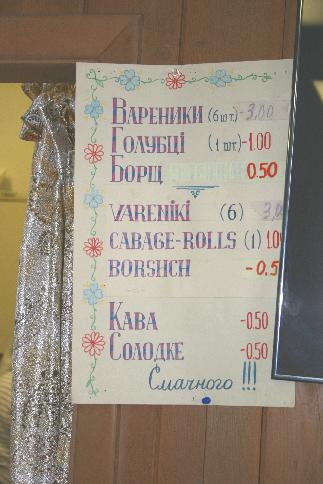 Вареники (6 шт.)-3,00
Голубці (1 шт.)-1.00
Борщ 0.50
VARENIKI (6) 3,0
CABAGE-ROLLS (1) 1.0
BORSHCH -0.5
Кава -0.50
Солодке -0.50
Смачного!!!